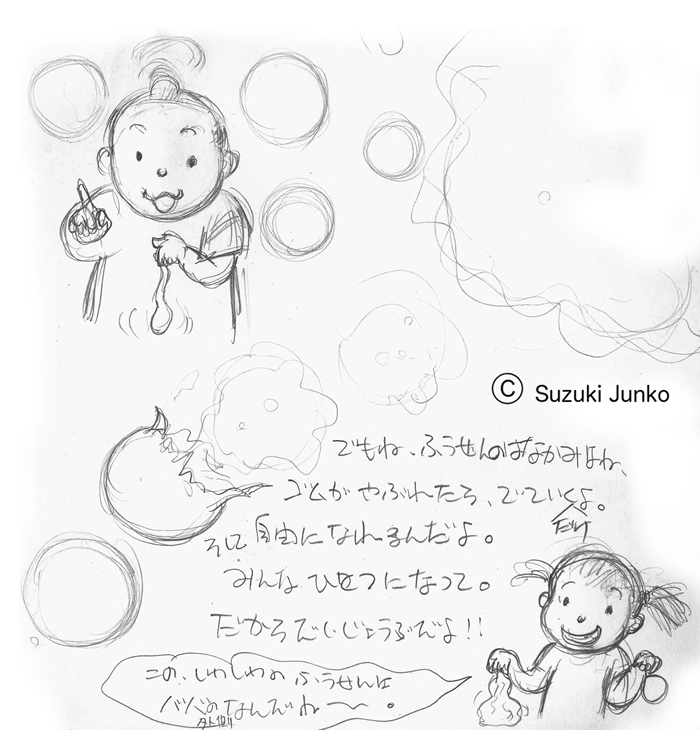 © Suzuki Junko
でもね、ふうせんのなかみはね、
ゴムがやぶれたら、でていくよ。
だけ
そして自由になれるんだよ。
みんなひとつになって。
だからだいじょうぶだよ!!
この、しわしわのふうせんは
バァバのなんだね〜。
外側